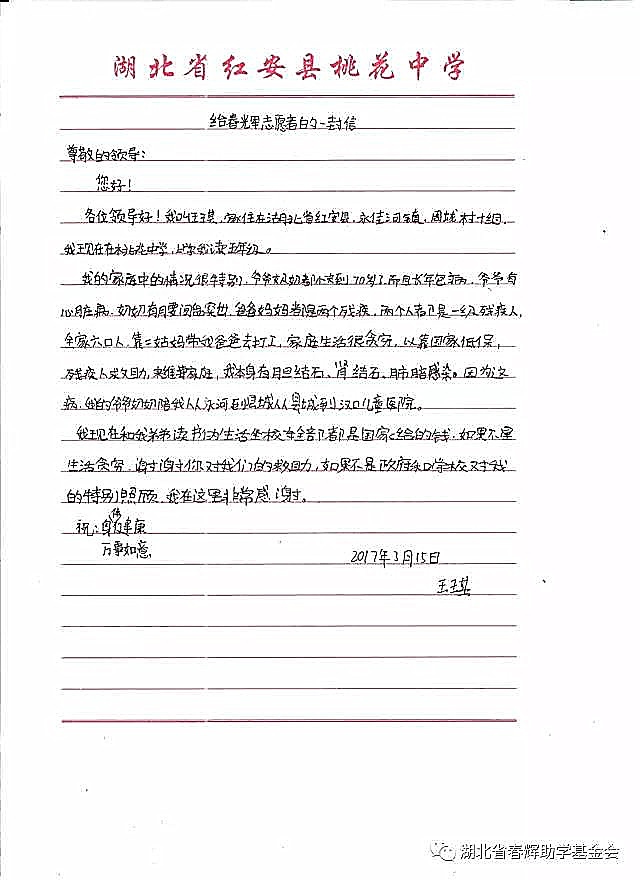 湖北省红安县桃花中学
给春辉志愿者的一封信
尊敬的领导:
您好!
各位领导好!我叫王琪,家住在湖北省红安县,永佳河镇,周城村十组,
我现在在桃花中学,上学我读五年级。
我的家庭中的情况很特别,爷爷奶奶都不来到70岁了而且长年包病,爷爷有
心脏病,奶奶有腰间盘突出,爸爸妈妈当是两个残疾,两个人都是一级残疾人,
全家六口人,靠二姑妈带我爸爸去打工,家庭生活很贪穷,以靠国家低保,
残疾人救助,来维等家庭,我本身有胆结石、肾结石、肺脂感染。因为这
病,我的爷爷奶奶陪我人从永河到县城从县城到汉口儿童医院。
我现在和我弟弟读书为生活学校全部都是国家给的钱,如果不是
生活贪穷,谢谢你对我们的救助,如果不是政府和学校对我
的特别照顾,我在这里非常感谢。
祝:身体健康
万事如意
2017年3月15日
王琪
湖北省春辉助学基金会